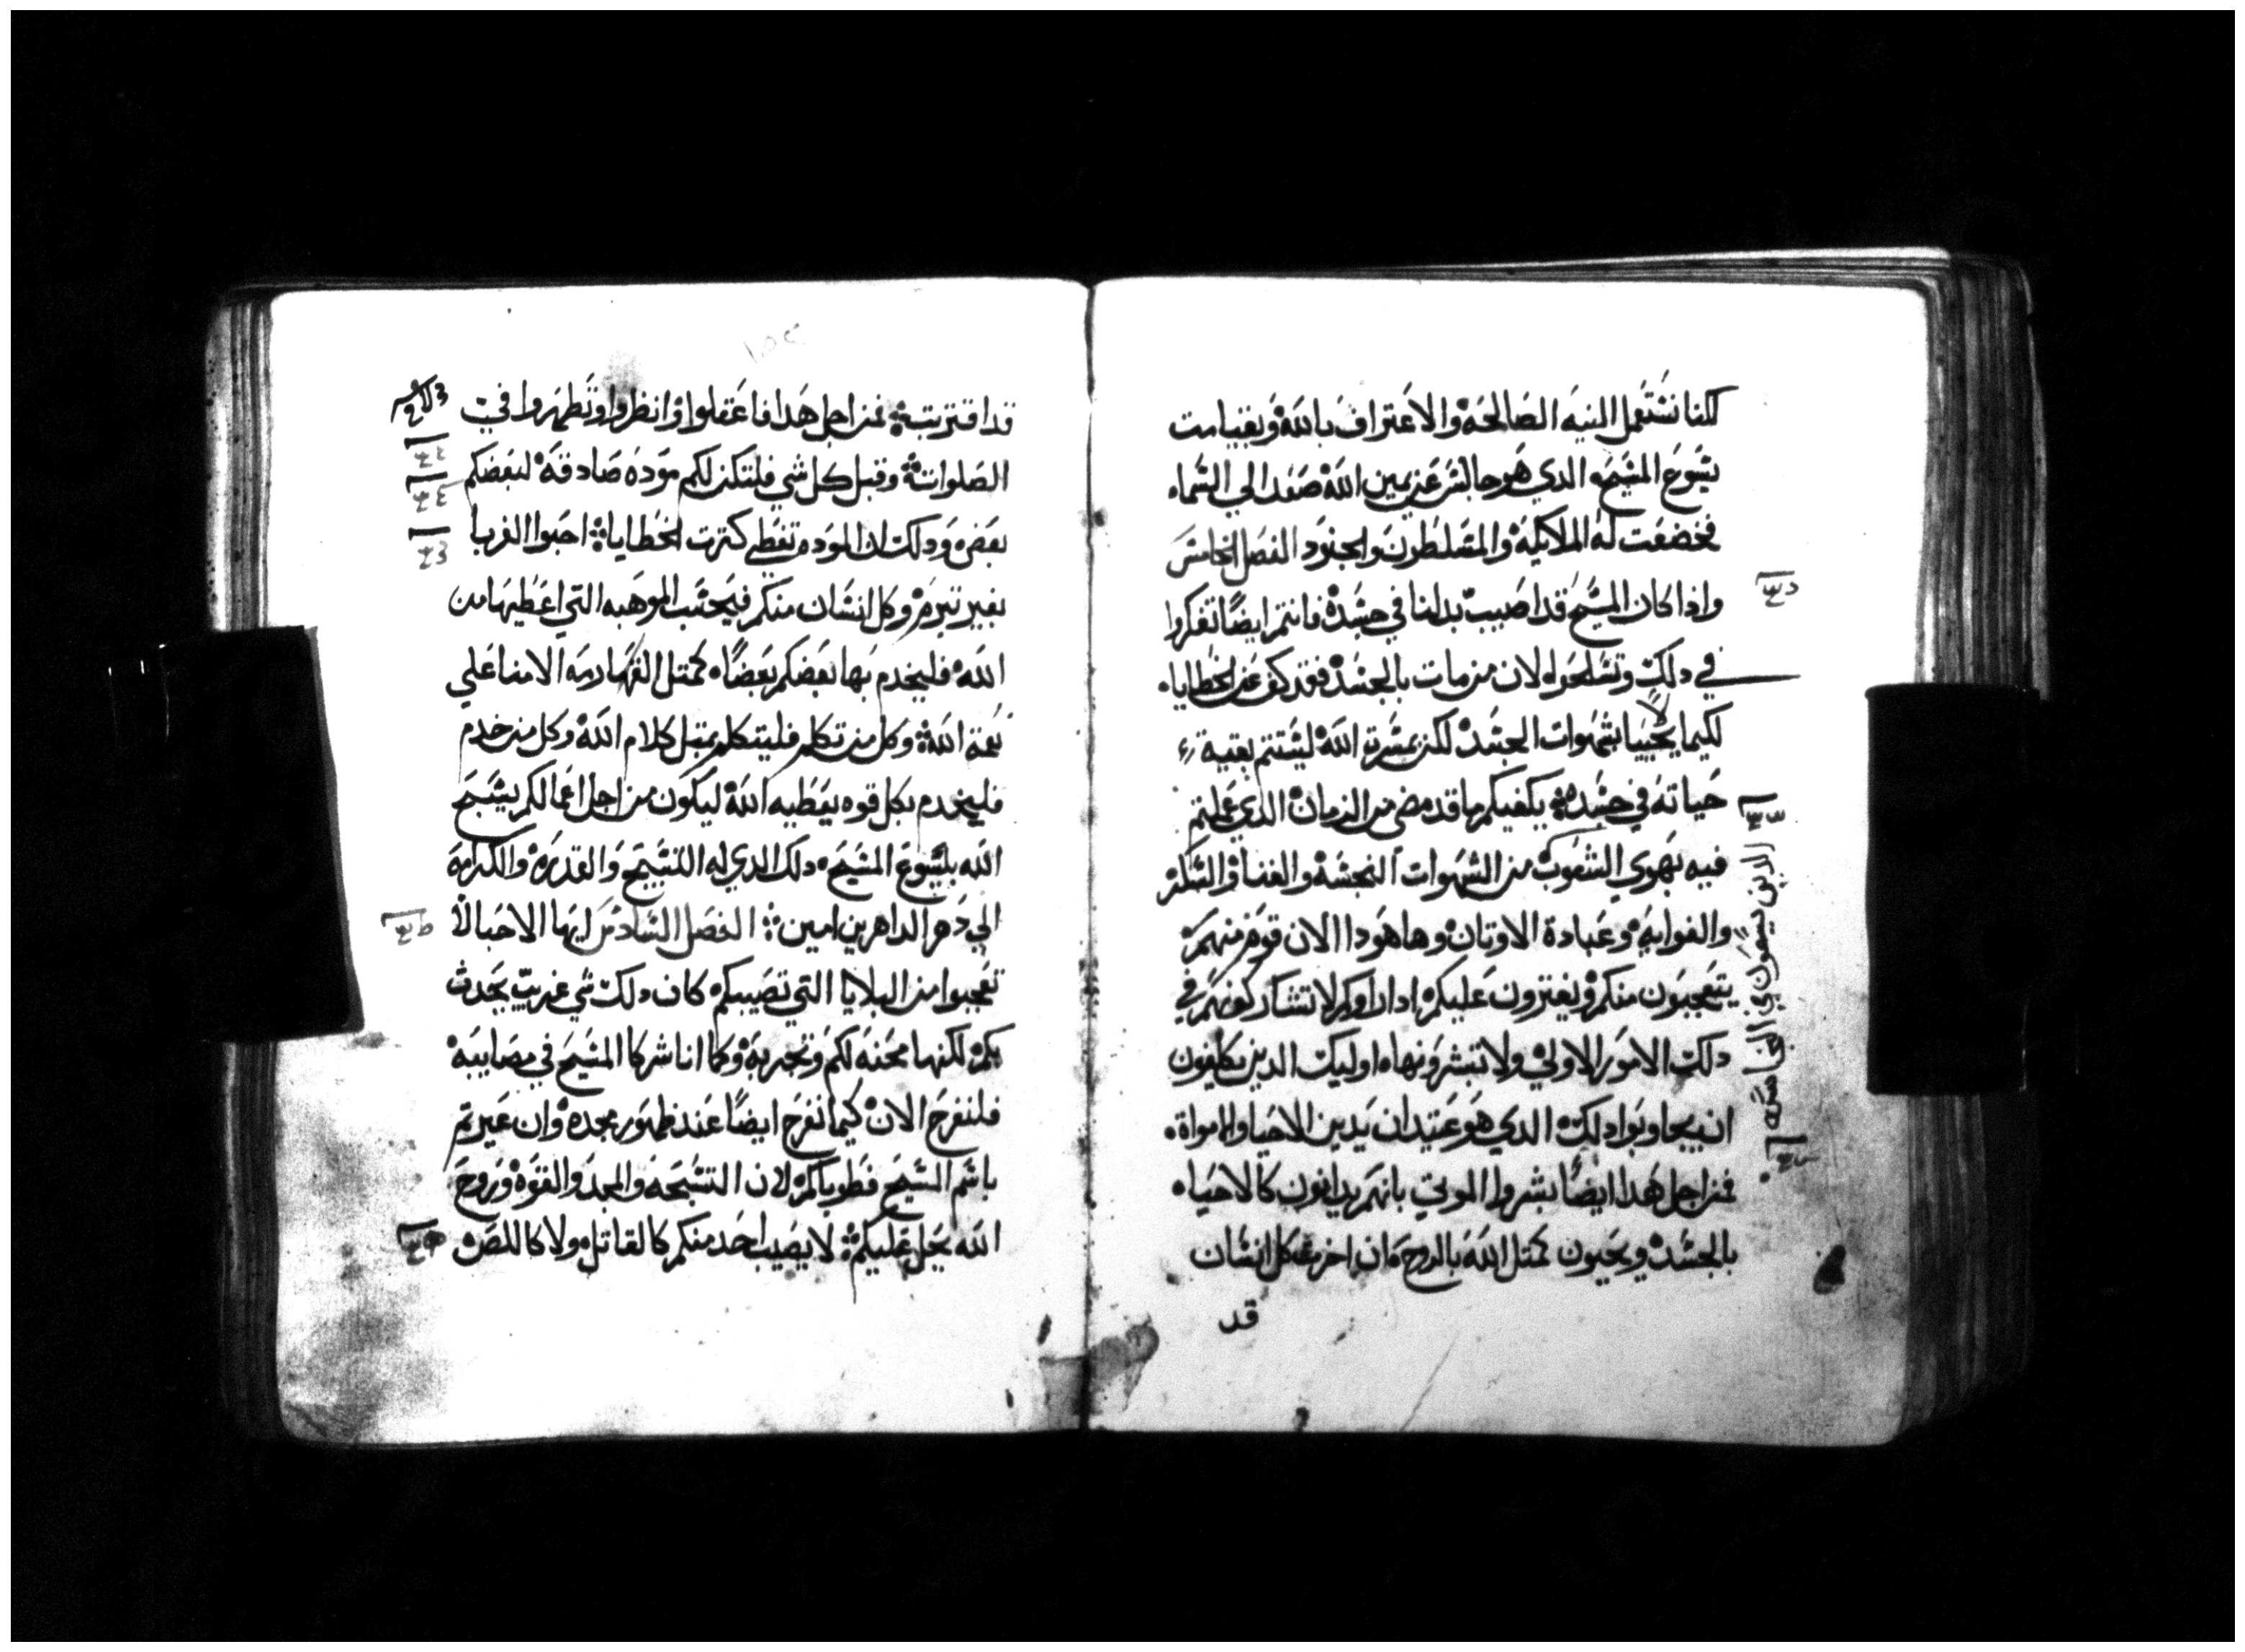 لكنا نستعمل النيه الصالحه والاعتراف بالله وبقيامت
يسوع المسيح الدي هو جالس عن يمين الله صعد الي السماء
فخضعت له الملايكه والمسلطون والجنود الفصل الخامس
واذا كان المسيح قد اصيب بدلنا في جسده فانتم ايضا تفكروا
في دلك وتسلحوا لان من مات بالجسد فقد كف عن الخطايا
لكيما لا يحييا بشهوات الجسد لكن بمسرة الله ليستتم بقية
حياته في جسده يكفيكم ما قد مضي من الزمان الدي عملتم
فيه بهوي الشعوب من الشهوات النجسه والغنا والسكر
والغوايه وعبادة الاوتان وها هودا الان قوم منهم
يتعجبون منكم ويفترون عليكم ادا راوكم لا تشاركونهم في
دلك الامور الاولي ولا تبشرونها اوليك الدين
ان يجاوبوا دلك الدي هو عتيد ان يدين الاحيا والامواة
فمن اجل هدا ايضا بشروا الموتي بانهم يدانون كالاحياء
بالجسد ويحيون كمتل الله بالروح وان اخرة كل انسان
قد
قد اقتربت فمن اجل هدا فاعقلوا وانظروا وتطهروا في
الصلوات وقبل كل شي فلتكن لكم مودة صادقة لبعضكم
بعض ودلك ان الموده تغطي كترت الخطايا احبوا الغربا
بغير تبرم وكل انسان منكم فيحسب الموهبه التي اعطيها من
الله فليخدم بها بعضكم بعضا كمتل القهارمه الامنا علي
نعمة الله وكل من تكلم فليتكلم بمتل كلام الله وكل من خدم
فليخدم بكل قوه يعطيه الله ليكون من اجل اعمالكم يسبح
الله بيسوع المسيح دلك الدي له التسبيح والقدره والكرامه
الي دهر الداهرين امين الفصل السادس ايها الاحبا لا
تعجبوا من البلايا التي تصيبكم كان دلك شي غريب يحدث
بكم لكنها محنه لكم وتجربه وكما انا شركا المسيح في مصايبه
فلنفرح الان كيما نفرح ايضا عند ظهور مجده وان عيرتم
باسم المسيح فطوباكم لان التسبحه والمجد والقوه وروح
الله يحل عليكم لا يصيب احد منكم كالقاتل ولا كاللص